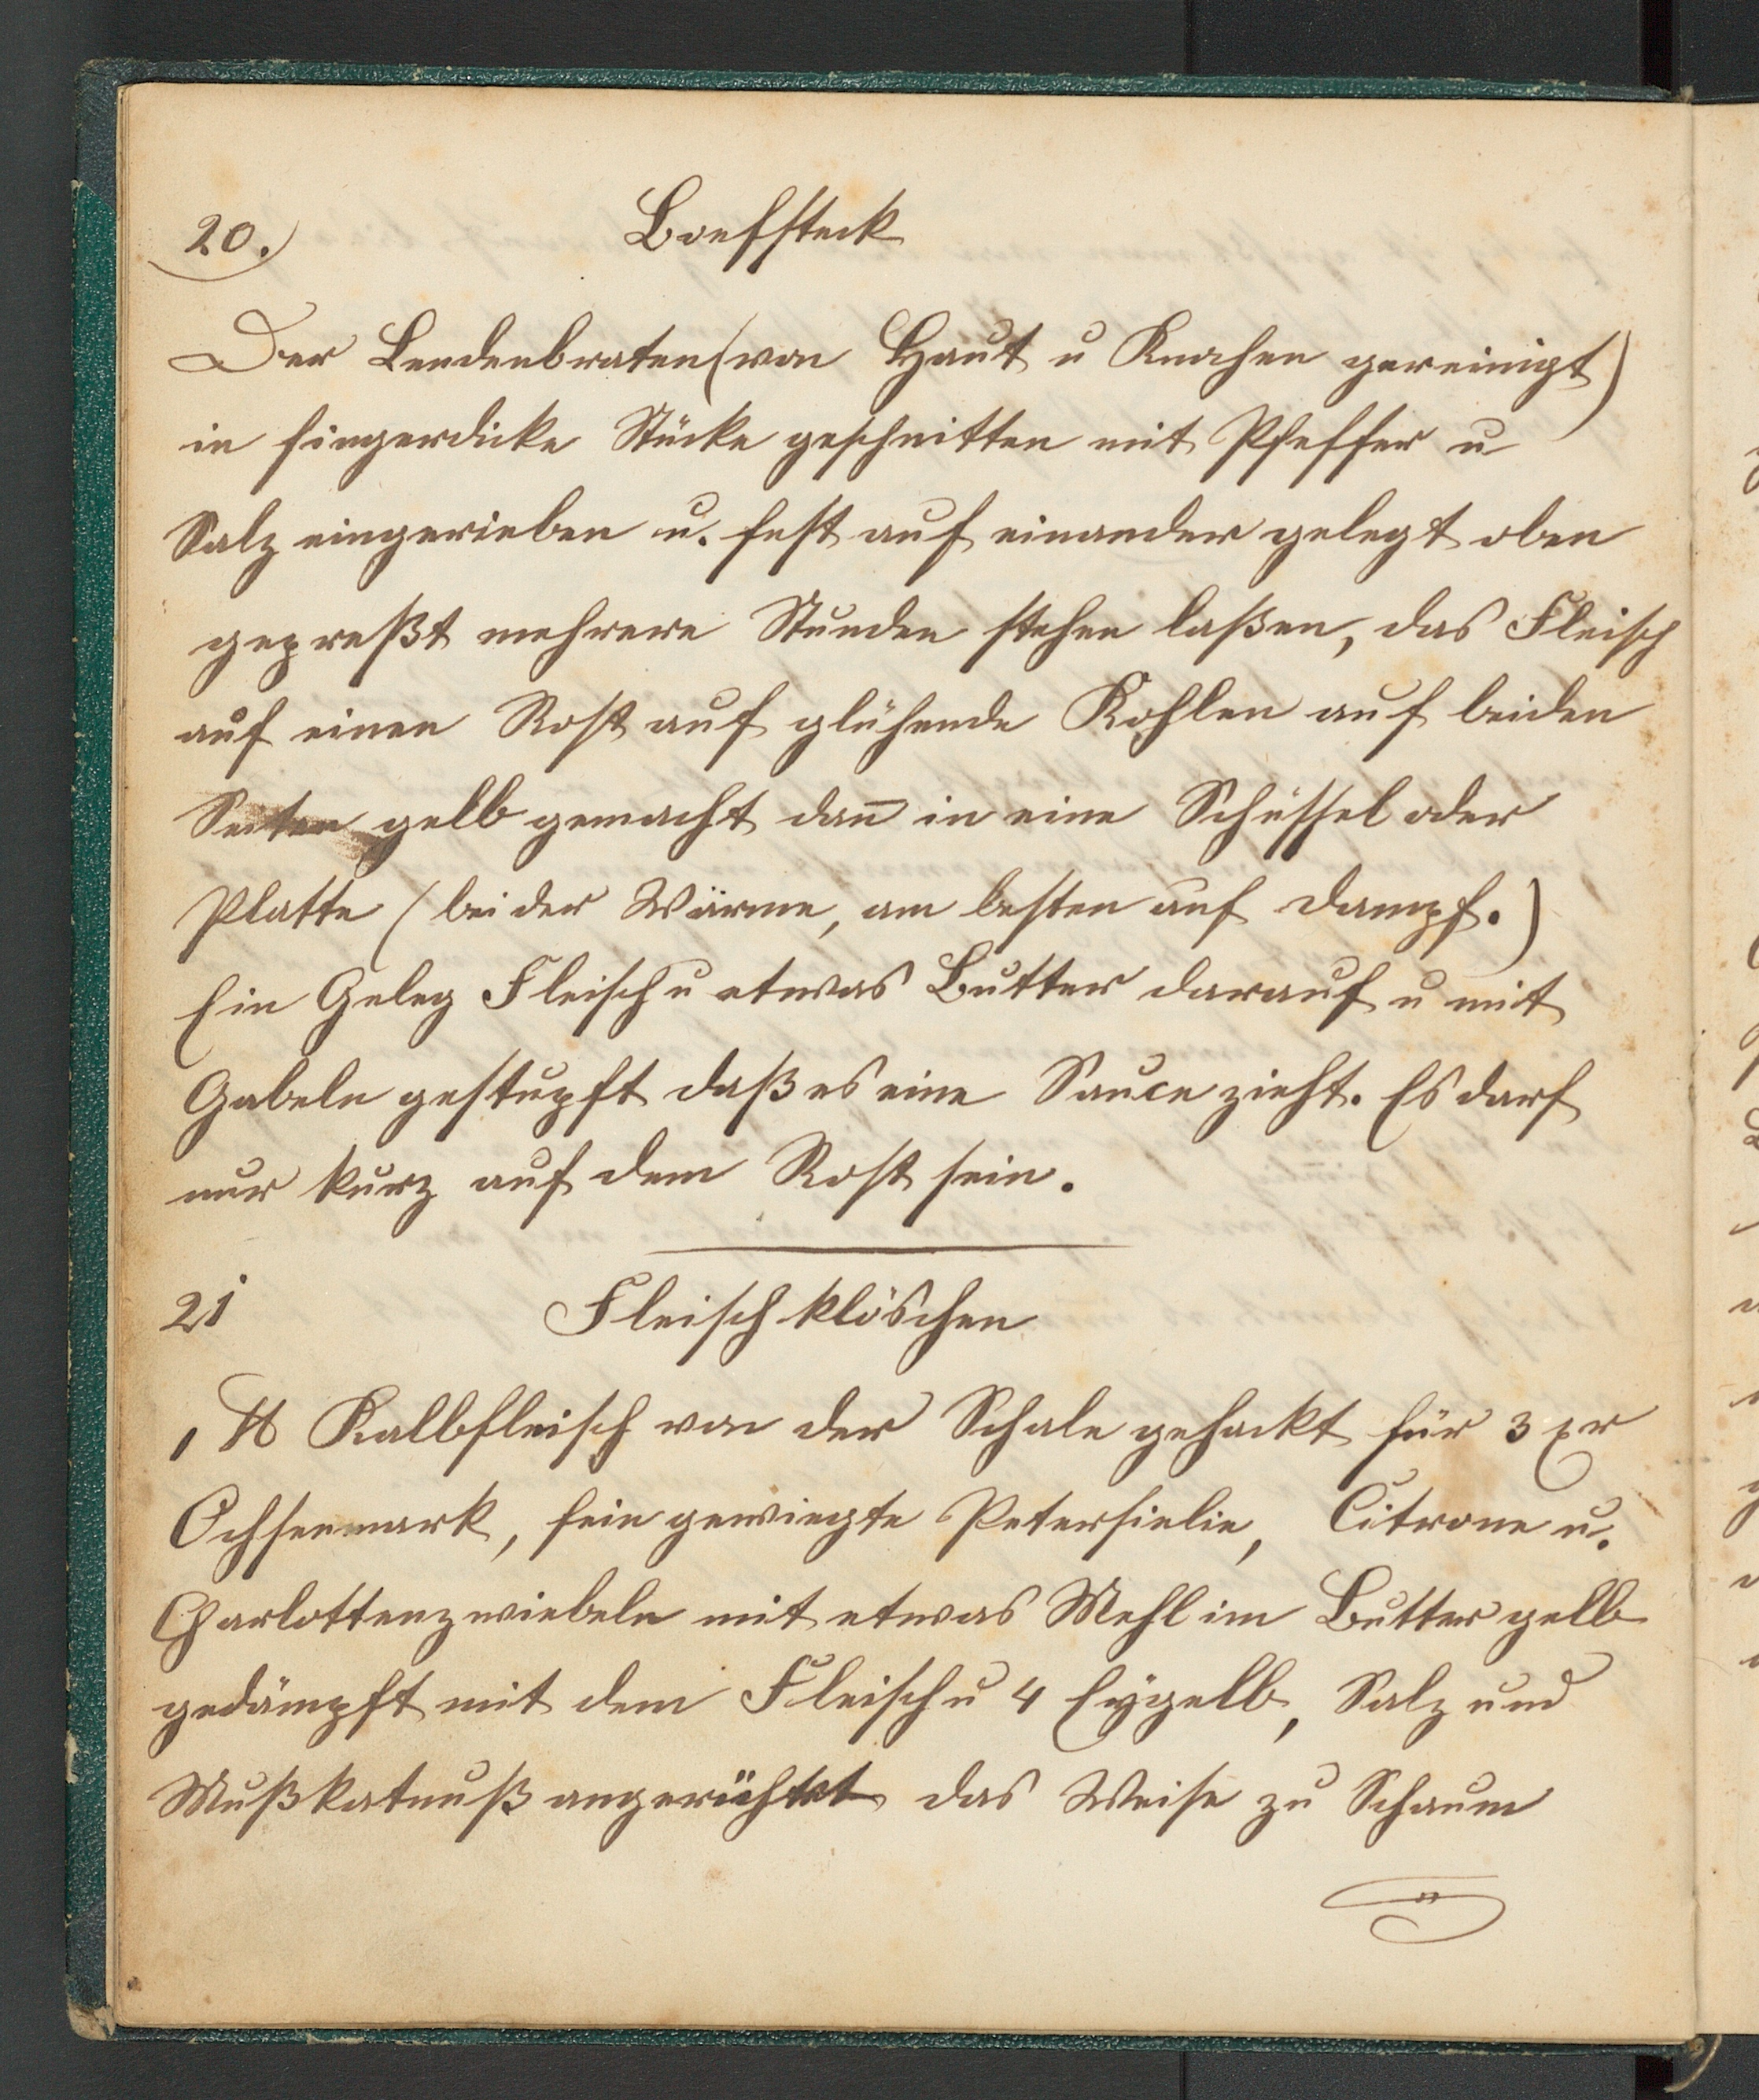 20.) Boefsteck
Der Lendenbraten (von Haut u Knochen gereinigt)
in fingerdicke Stücke geschnitten mit Pfeffer u
Salz eingerieben u. fest auf einander gelegt oben
gepreßt mehrere Stunden stehen laßen, das Fleisch
auf einen Rost auf glühende Kohlen auf beiden
Seiten gelb gemacht dan̄ in eine Schüssel oder
Platte (bei der Wärme, am besten auf Dampf.)
Ein Geleg Fleisch u etwas Butter darauf u mit
Gabeln gestupft daß es eine Sauce zieht. Es darf
nur kurz auf dem Rost sein.
21 Fleischklöschen
1 ℔ Kalbfleisch von der Schale gehackt für 3 xr
Ochsenmark, fein gewiegte Petersielie, Citrone u.
Charlottenzwiebeln mit etwas Mehl im Butter gelb
gedämpft mit dem Fleisch u 4 Eygelb, Salz und
Mußkatnuß angerührt das Weise zu Schaum